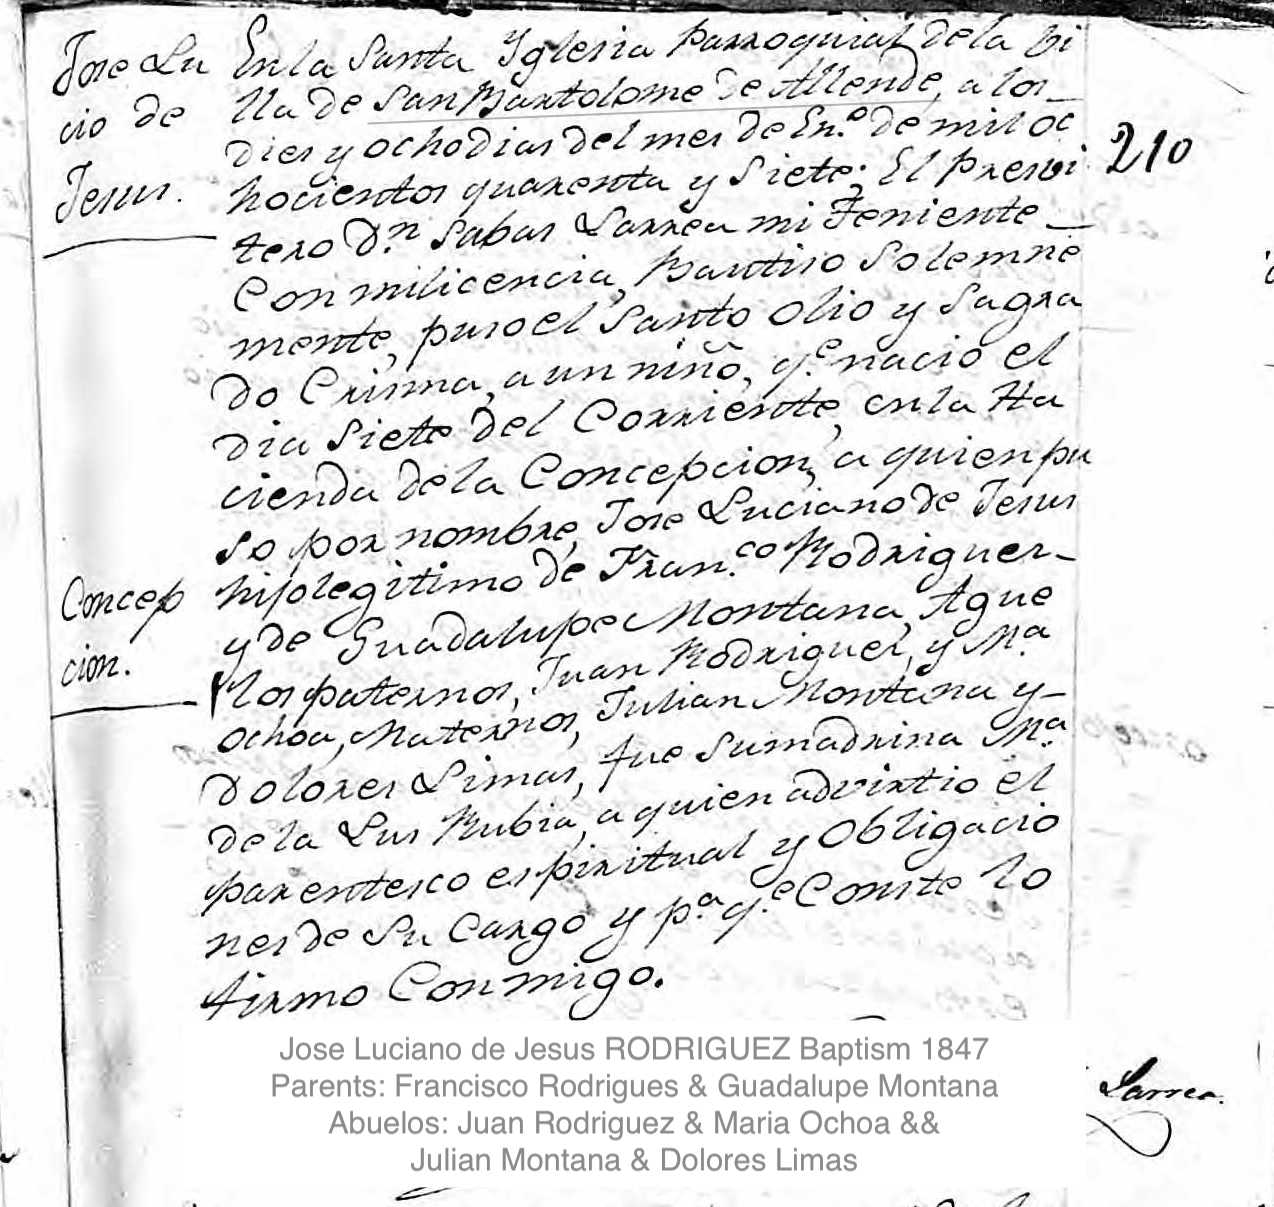 Jose Lu
cio de
Jesus.
En la Santa Yglesia Parroquial de la Vi
lla de San Bartolome de Allende, a los
dies y ocho dias del mes de En.º de mil oc
hocientos quarenta y Siete; El Presvi
tero Dn Sabas Larrea mi Teniente
Con mi licencia, Bautiso Solemne
mente, puso el Santo Olio y Sagra
do Crisma, a un niño, q.e nacio el
dia Siete del Corriente, en la Ha
cienda de la Concepcion, a quien pu
so por nombre, Jose Luciano de Jesus
hijo legitimo de Fran.co Rodrigues
y de Guadalupe Montana, Ague
los paternos, Juan Rodriguez, y M.a
Ochoa, Maternos, Julian Montana y
Dolores Limas, fue su madrina M.a
de la Lus Rubia, a quien advirtio el
parentesco espiritual y Obligacio
nes de Su Cargo y p.a q.e Conste lo
firmo Conmigo.
Concep
cion.
210
Larrea.
Jose Luciano de Jesus RODRIGUEZ Baptism 1847
Parents: Francisco Rodrigues & Guadalupe Montana
Abuelos: Juan Rodriguez & Maria Ochoa &&
Julian Montana & Dolores Limas